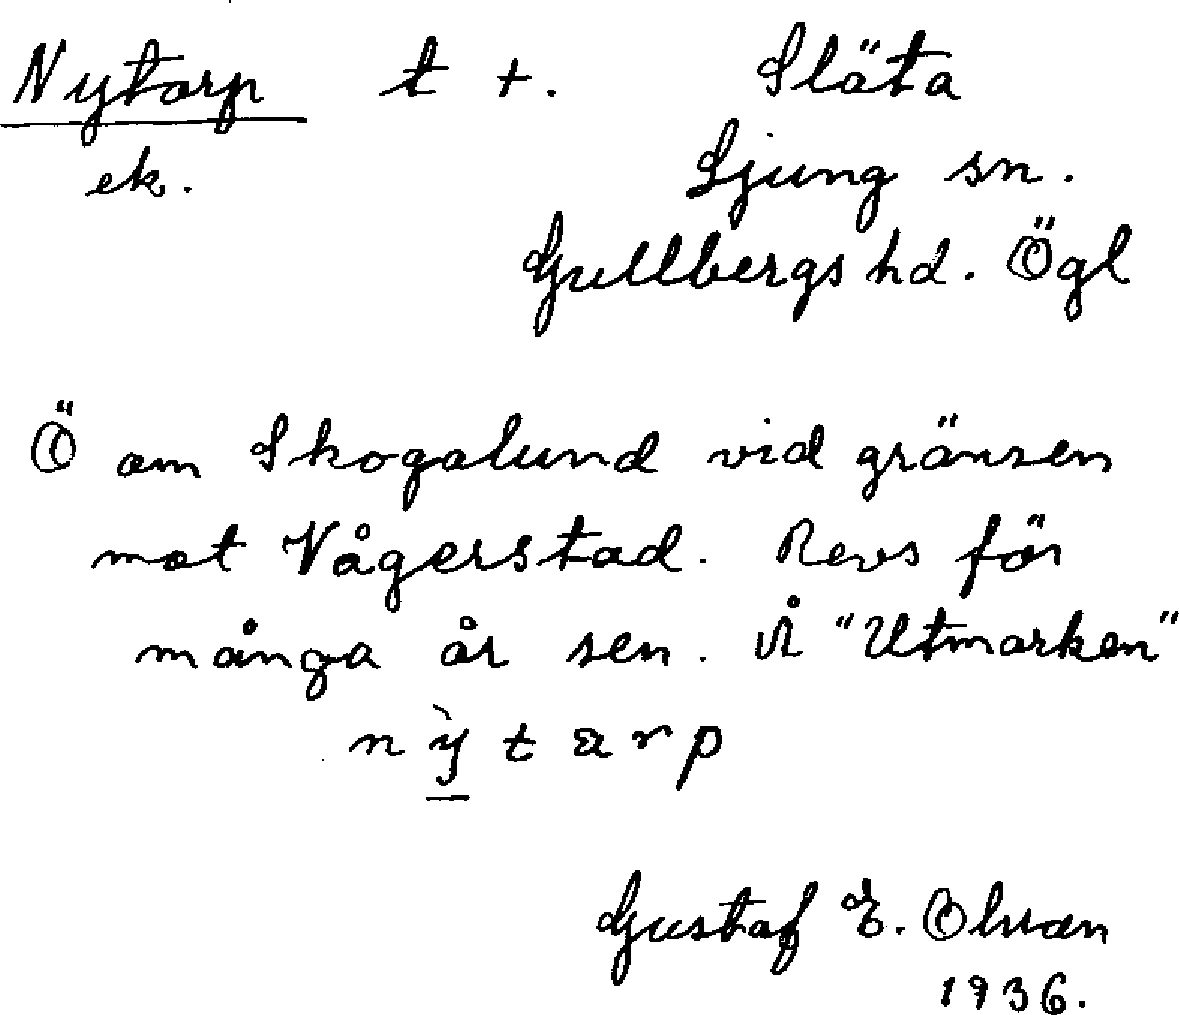 Nytorp t +. Släta
ek. Ljung sn.
Gullbergs hd. Ögl
Ö om Skogalund vid gränsen
mot Vågerstad. Revs för
många år sen. Å "Utmarken"
Gustaf E. Olson
1936.